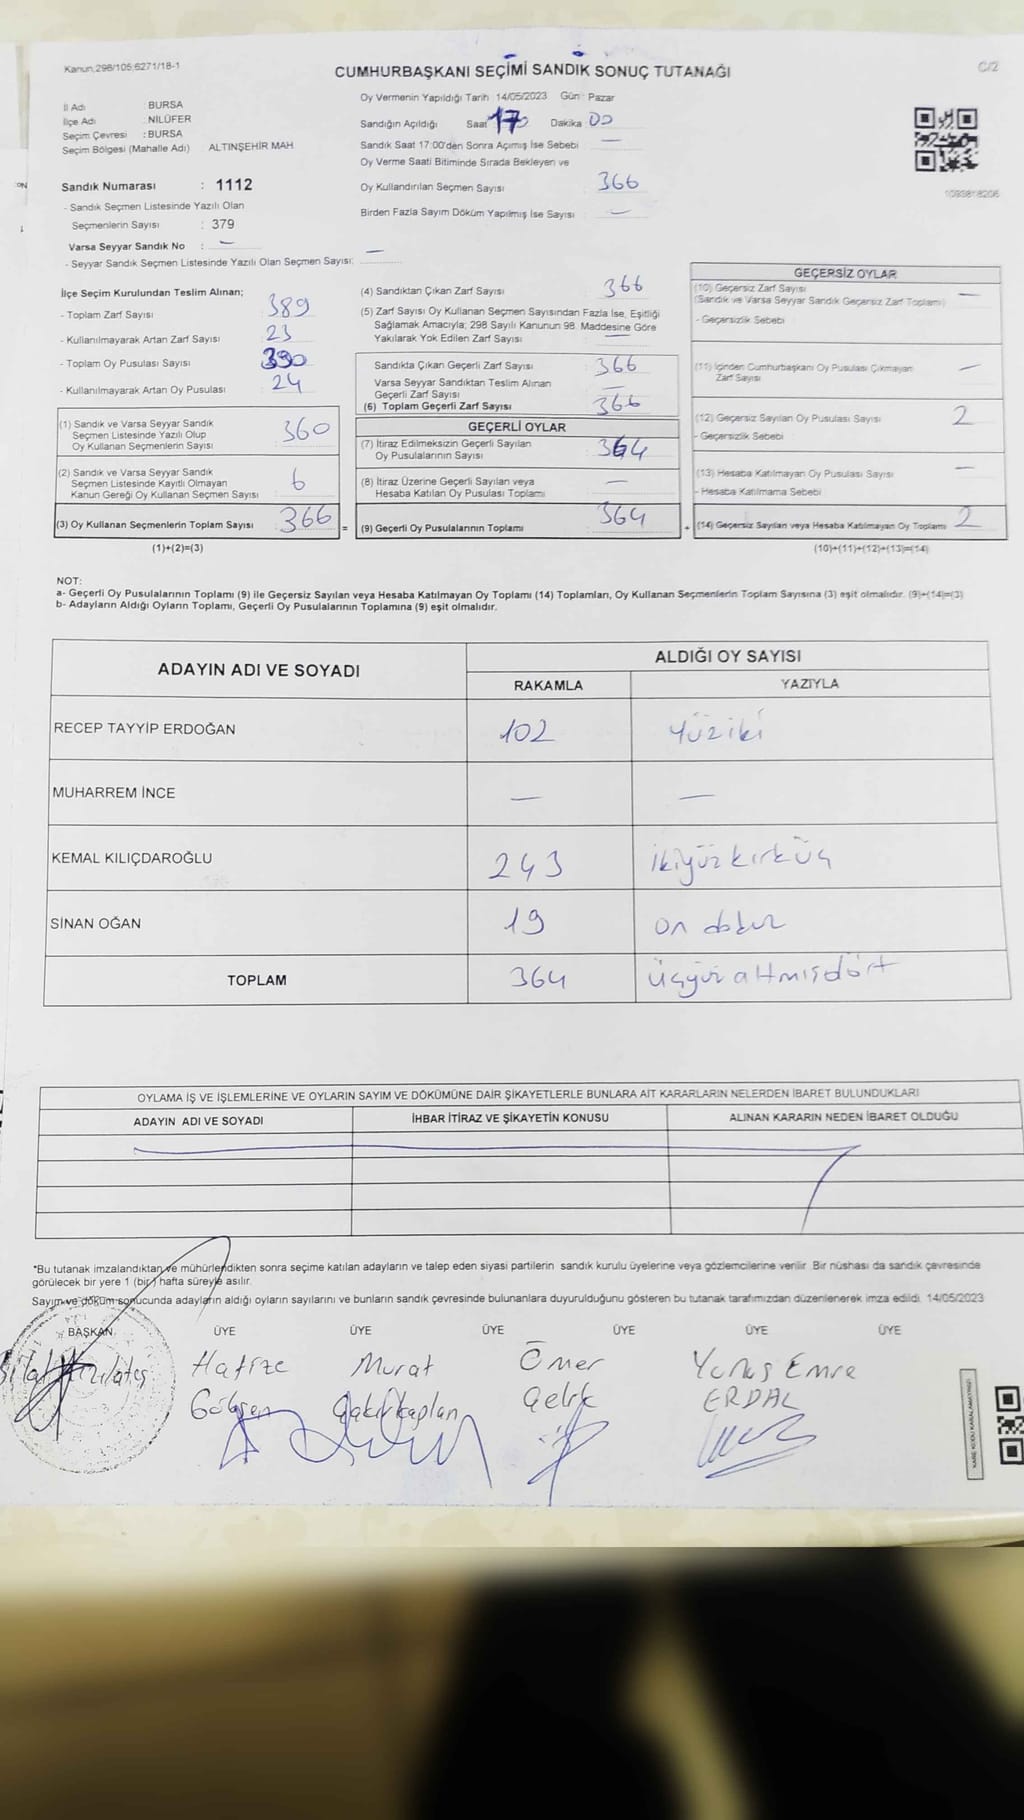 Kanun,298/105;6271/18-1
CUMHURBAŞKANI SEÇİMİ SANDIK SONUÇ TUTANAĞI
C/2
İl Adı : BURSA
İlçe Adı : NİLÜFER
Seçim Çevresi : BURSA
Seçim Bölgesi (Mahalle Adı) ALTINŞEHİR MAH.
Sandık Numarası : 1112
- Sandık Seçmen Listesinde Yazılı Olan
Seçmenlerin Sayısı : 379
Varsa Seyyar Sandık No : —
- Seyyar Sandık Seçmen Listesinde Yazılı Olan Seçmen Sayısı: —
Oy Vermenin Yapıldığı Tarih 14/05/2023 Gün : Pazar
Sandığın Açıldığı Saat 17 Dakika 00
Sandık Saat 17:00'den Sonra Açımış İse Sebebi —
Oy Verme Saati Bitiminde Sırada Bekleyen ve
Oy Kullandırılan Seçmen Sayısı 366
Birden Fazla Sayım Döküm Yapılmış İse Sayısı —
1093818206
İlçe Seçim Kurulundan Teslim Alınan;
- Toplam Zarf Sayısı 389
- Kullanılmayarak Artan Zarf Sayısı 23
- Toplam Oy Pusulası Sayısı 390
- Kullanılmayarak Artan Oy Pusulası 24
(1) Sandık ve Varsa Seyyar Sandık
Seçmen Listesinde Yazılı Olup
Oy Kullanan Seçmenlerin Sayısı 360
(2) Sandık ve Varsa Seyyar Sandık
Seçmen Listesinde Kayıtlı Olmayan
Kanun Gereği Oy Kullanan Seçmen Sayısı 6
(3) Oy Kullanan Seçmenlerin Toplam Sayısı 366 =
(1)+(2)=(3)
(4) Sandıktan Çıkan Zarf Sayısı 366
(5) Zarf Sayısı Oy Kullanan Seçmen Sayısından Fazla İse, Eşitliği
Sağlamak Amacıyla; 298 Sayılı Kanunun 98. Maddesine Göre
Yakılarak Yok Edilen Zarf Sayısı —
Sandıkta Çıkan Geçerli Zarf Sayısı 366
Varsa Seyyar Sandıktan Teslim Alınan
Geçerli Zarf Sayısı —
(6) Toplam Geçerli Zarf Sayısı 366
GEÇERLİ OYLAR
(7) İtiraz Edilmeksizin Geçerli Sayılan
Oy Pusulalarının Sayısı 364
(8) İtiraz Üzerine Geçerli Sayılan veya
Hesaba Katılan Oy Pusulası Toplamı —
(9) Geçerli Oy Pusulalarının Toplamı 364 +
GEÇERSİZ OYLAR
(10) Geçersiz Zarf Sayısı —
(Sandık ve Varsa Seyyar Sandık Geçersiz Zarf Toplamı)
- Geçersizlik Sebebi
(11) İçinden Cumhurbaşkanı Oy Pusulası Çıkmayan
Zarf Sayısı —
(12) Geçersiz Sayılan Oy Pusulası Sayısı 2
- Geçersizlik Sebebi
(13) Hesaba Katılmayan Oy Pusulası Sayısı —
- Hesaba Katılmama Sebebi
(14) Geçersiz Sayılan veya Hesaba Katılmayan Oy Toplamı 2
(10)+(11)+(12)+(13)=(14)
NOT:
a- Geçerli Oy Pusulalarının Toplamı (9) ile Geçersiz Sayılan veya Hesaba Katılmayan Oy Toplamı (14) Toplamları, Oy Kullanan Seçmenlerin Toplam Sayısına (3) eşit olmalıdır. (9)+(14)=(3)
b- Adayların Aldığı Oyların Toplamı, Geçerli Oy Pusulalarının Toplamına (9) eşit olmalıdır.
ADAYIN ADI VE SOYADI ALDIĞI OY SAYISI
RAKAMLA YAZIYLA
RECEP TAYYİP ERDOĞAN 102 Yüziki
MUHARREM İNCE — —
KEMAL KILIÇDAROĞLU 243 ikiyüzkırküç
SİNAN OĞAN 19 on dokuz
TOPLAM 364 üçyüzaltmışdört
OYLAMA İŞ VE İŞLEMLERİNE VE OYLARIN SAYIM VE DÖKÜMÜNE DAİR ŞİKAYETLERLE BUNLARA AİT KARARLARIN NELERDEN İBARET BULUNDUKLARI
ADAYIN ADI VE SOYADI İHBAR İTİRAZ VE ŞİKAYETİN KONUSU ALINAN KARARIN NEDEN İBARET OLDUĞU
*Bu tutanak imzalandıktan ve mühürlendikten sonra seçime katılan adayların ve talep eden siyasi partilerin sandık kurulu üyelerine veya gözlemcilerine verilir. Bir nüshası da sandık çevresinde
görülecek bir yere 1 (bir) hafta süreyle asılır.
Sayım ve döküm sonucunda adayların aldığı oyların sayılarını ve bunların sandık çevresinde bulunanlara duyurulduğunu gösteren bu tutanak tarafımızdan düzenlenerek imza edildi. 14/05/2023
BAŞKAN ÜYE ÜYE ÜYE ÜYE ÜYE ÜYE
Hafize Murat Ömer Yunus Emre
Gülşen Çakırkaplan Çelik ERDAL
KARE KODU KARALAMAYINIZ!